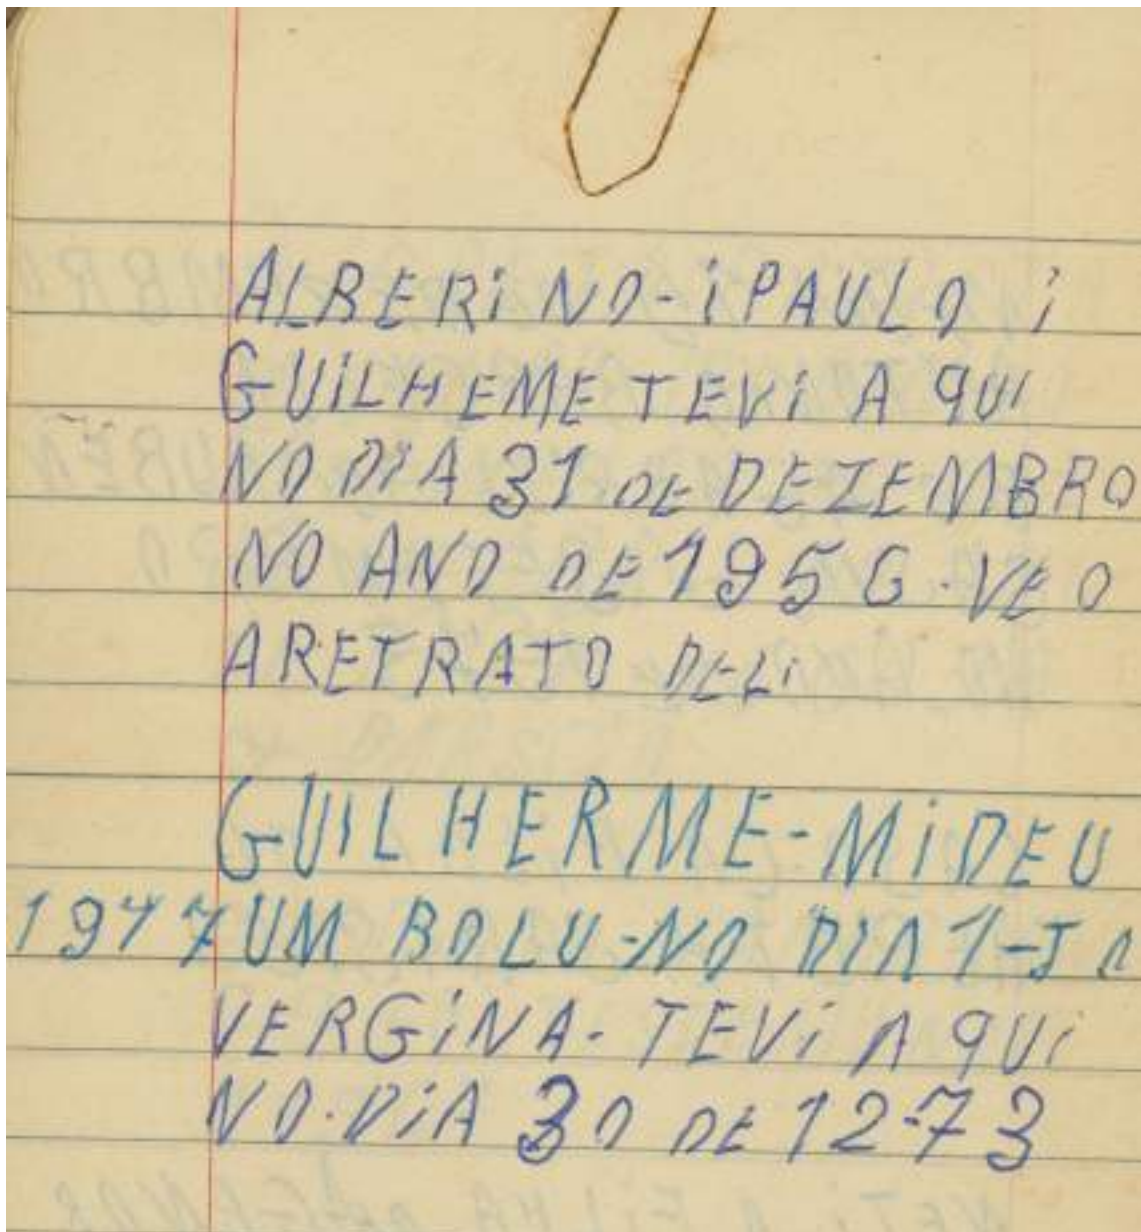 ALBERINO-i PAULO i
GUiLHEME TEVi A QUI
NO DiA 31 DE DEZEMBRO
NO ANO DE 1956. VEO
ARETRATO DELi
GUILHERME-MiDEU
1977 UM BOLU-NO DIA 1-JA
VERGiNA-TEVi A QUi
NO.DiA 30 DE 12-73